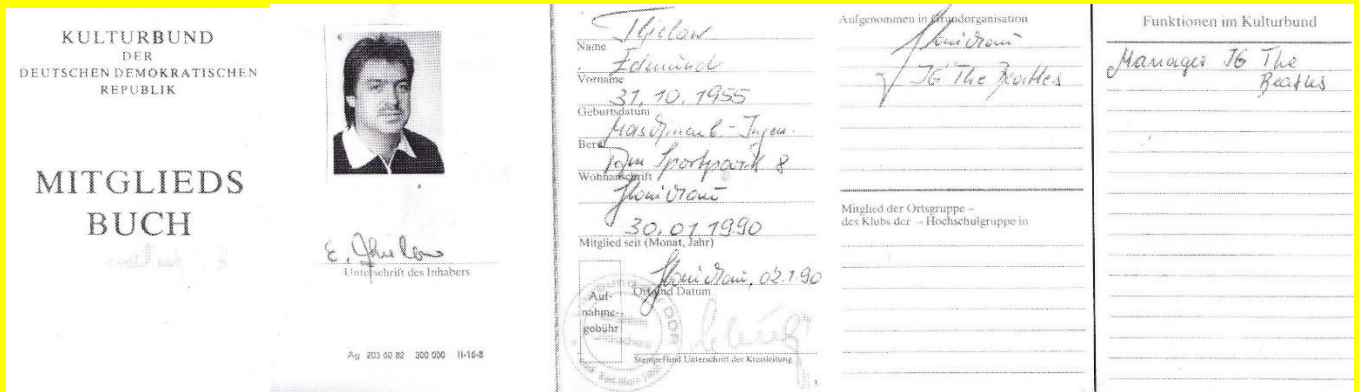 KULTURBUND
DER
DEUTSCHEN DEMOKRATISCHEN
REPUBLIK
MITGLIEDS
BUCH
E. Thielow
Unterschrift des Inhabers
Ag 203 00 82 300 000 II-16-8
Thielow
Name
Edmund
Vorname
31.10.1955
Geburtsdatum
Maschinenb.-Ingen.
Beruf
Am Sportpark 8
Wohnanschrift
30.01.1990
Mitglied seit (Monat, Jahr)
02.1.90
Ort und Datum
Auf-
nahme-
gebühr
Stempel und Unterschrift der Kreisleitung
3
Aufgenommen in Grundorganisation
IG The Beatles
Mitglied der Ortsgruppe –
des Klubs der – Hochschulgruppe in
Funktionen im Kulturbund
Manager IG The
Beatles